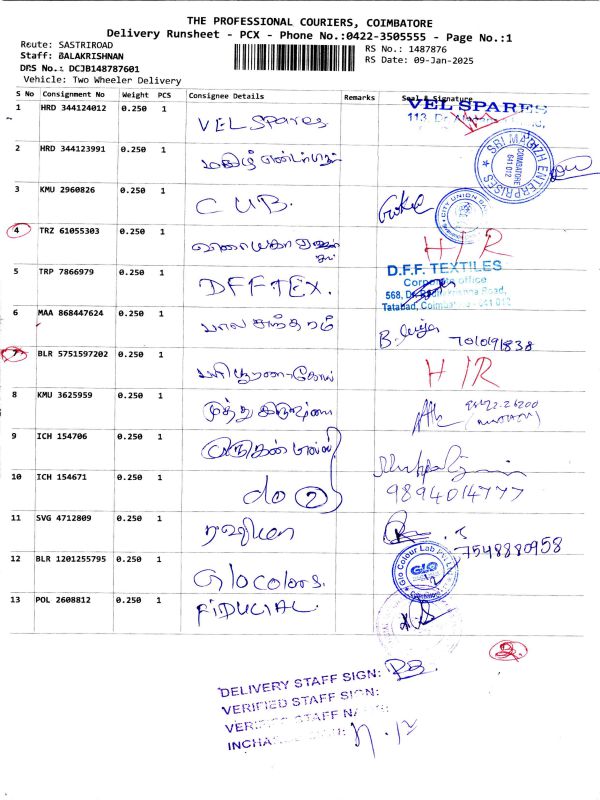 THE PROFESSIONAL COURIERS, COIMBATORE
Delivery Runsheet - PCX - Phone No.:0422-3505555 - Page No.:1
Route: SASTRIROAD
RS No.: 1487876
Staff: BALAKRISHNAN
RS Date: 09-Jan-2025
DRS No.: DCJB148787601
Vehicle: Two Wheeler Delivery
S No Consignment No Weight PCS Consignee Details Remarks Seal & Signature
1 HRD 344124012 0.250 1 VEL SPares VEL SPARES
113, Dr.
2 HRD 344123991 0.250 1 மகிழ் SRI MAGIZH ENTERPRISES COIMBATORE 641 012
3 KMU 2960826 0.250 1 CUB. CITY UNION
4 TRZ 61055303 0.250 1 H/R
5 TRP 7866979 0.250 1 DFFTEX. D.F.F. TEXTILES
Corporate office
568, Road,
Tatabad, Coimbatore - 641 012
6 MAA 868447624 0.250 1 பால சந்தரம்
7 BLR 5751597202 0.250 1 H/R
8 KMU 3625959 0.250 1 முத்து
9 ICH 154706 0.250 1 முருகன் மில்ஸ்
10 ICH 154671 0.250 1 do 2 9894014777
11 SVG 4712809 0.250 1 7548880958
12 BLR 1201255795 0.250 1 Glo colors. Glo Colour Lab Pvt Ltd GLO
13 POL 2608812 0.250 1 FIDUCIAL.
2
DELIVERY STAFF SIGN:
VERIFIED STAFF SIGN:
VERIFIED STAFF NAME:
INCHARGE SIGN: